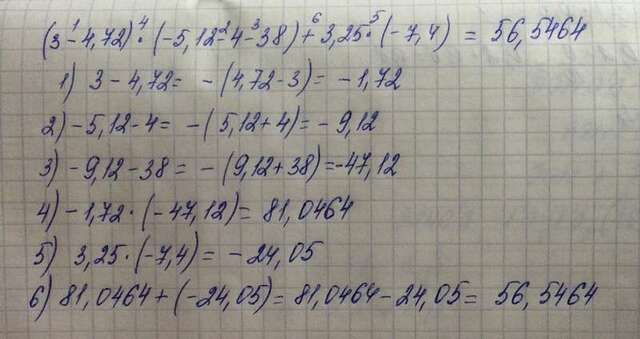 (3-4,72)·(-5,12-4-38)+3,25·(-7,4) = 56,5464
1) 3-4,72= -(4,72-3)= -1,72
2) -5,12-4= -(5,12+4)= -9,12
3) -9,12-38= -(9,12+38)=-47,12
4) -1,72·(-47,12)= 81,0464
5) 3,25·(-7,4)= -24,05
6) 81,0464+(-24,05)= 81,0464-24,05= 56,5464